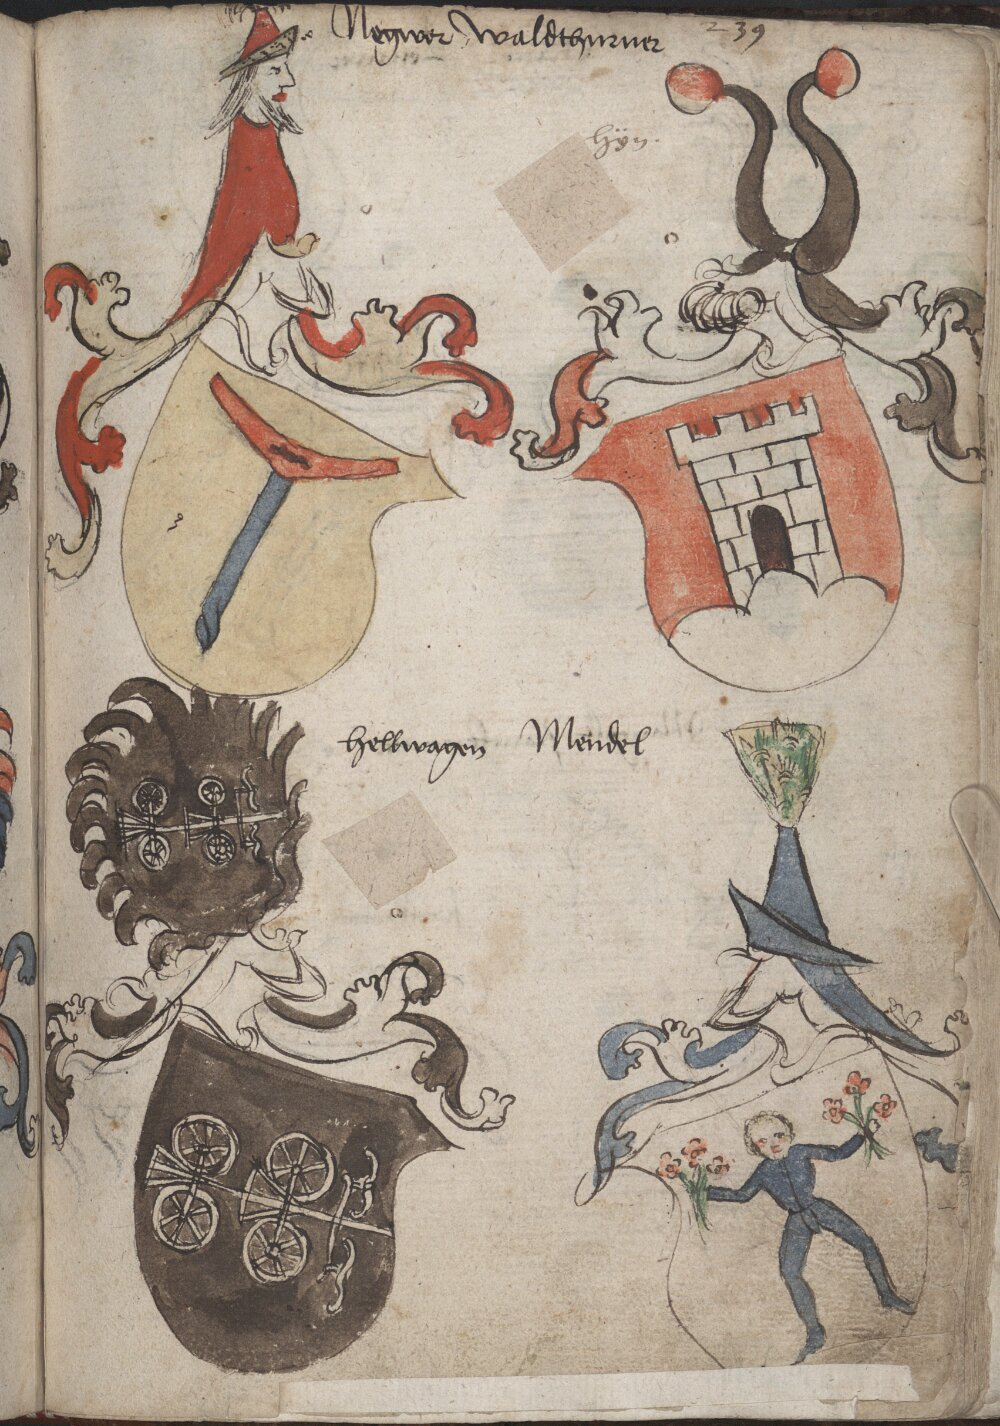 Negwer Waldthurner 239
hÿn.
hellwagen Mendel